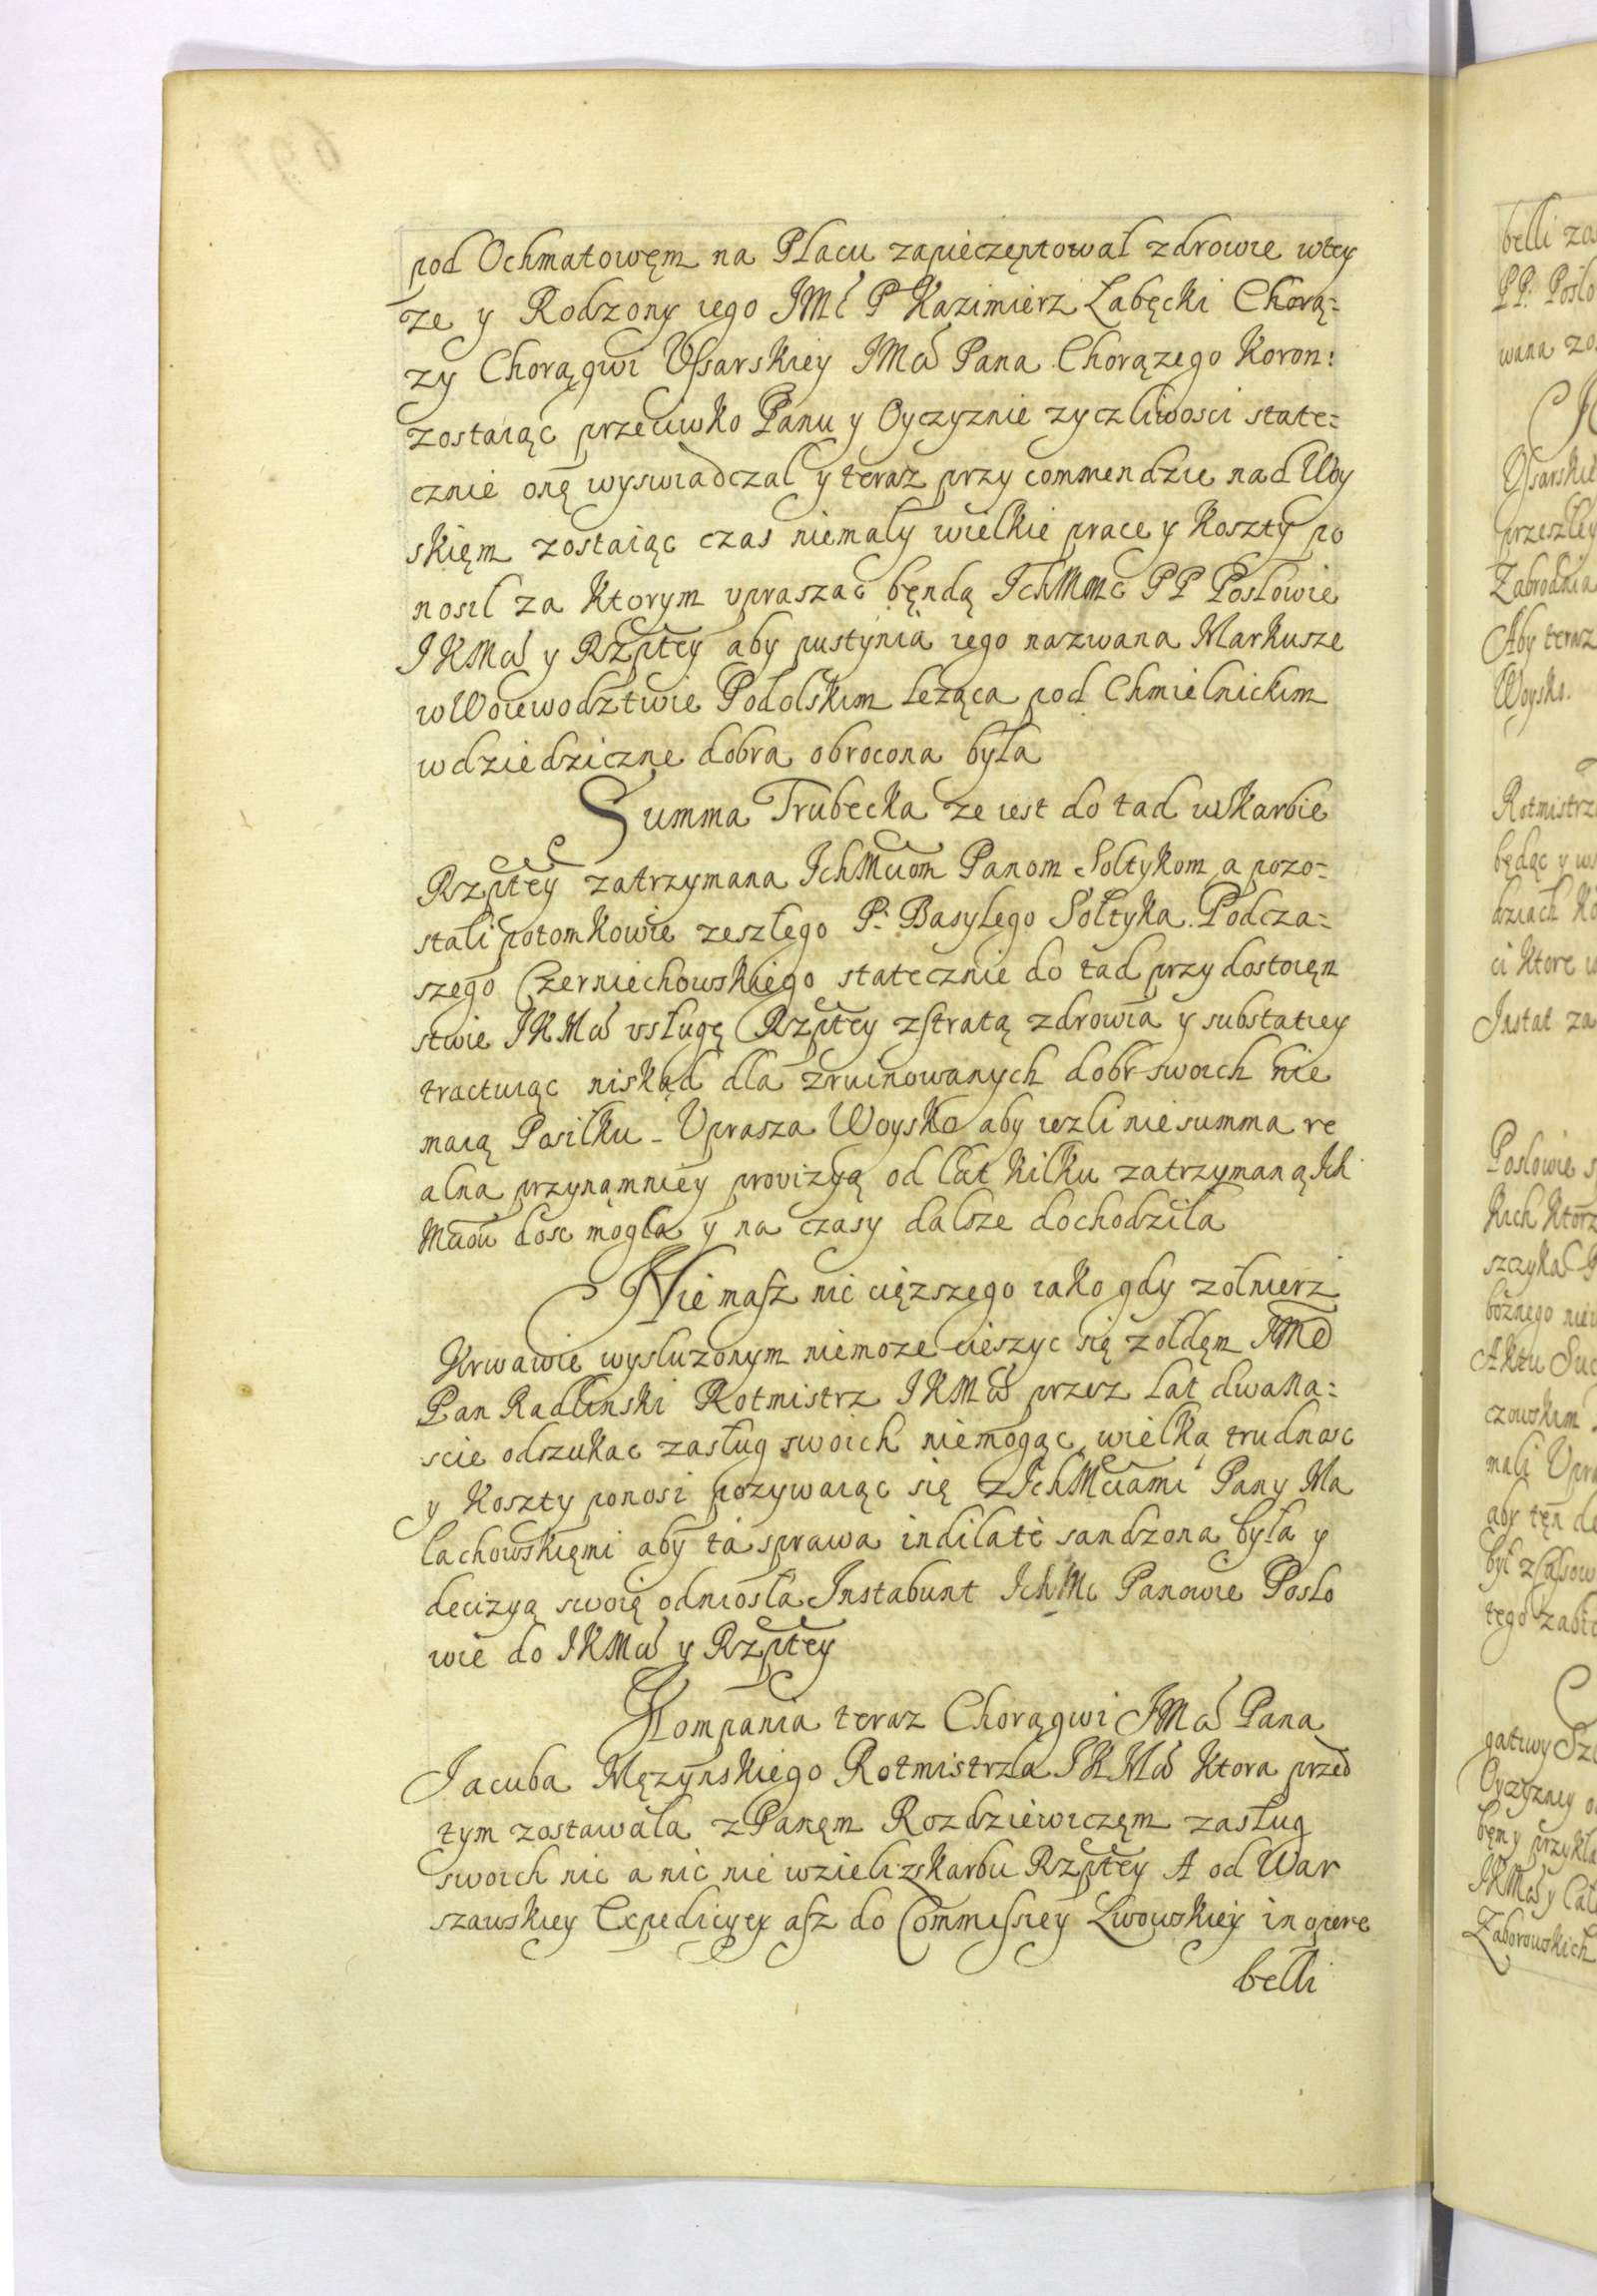 pod Ochmatowęm na Placu zapieczętował zdrowie wtey
że y Rodzony iego JMć P Kazimierz Łabęcki Chorą=
zy Chorągwi Vssarskiey JMći Pana Chorązego Koron:
zostaiąc przeciwko Panu y Oyczyznie zyczliwosci state=
cznie onę wyswiadczał y teraz przy commendzie nad Woy
skięm zostaiąc czas niemały wielkie prace y Koszty po
nosił za Ktorym vpraszac będą IchMmć PP Posłowie
JKMći y Rzptey aby pustynia iego nazwana Markusze
w Woiewodztwie Podolskim leząca pod Chmielnickim
w dziedziczne dobra obrocona była
Summa Trubecka ze iest do tad w skarbie
Rzptey zatrzymana IchMciom Panom Sołtykom a pozo=
stali potomkowie zeszłego P: Basylego Sołtyka Podcza=
szego Czerniechowskiego statecznie do tad przy dostoięn
stwie JKMći vsługę Rzptey z stratą zdrowia y substatiey
tractuiąc niskąd dla zruinowanych dobr swoich nie
maią Posiłku - Vprasza Woysko aby iezli nie summa re
alna przynąmniey prowizyą od lat kilku zatrzymaną Ich
Mciów dość mogła y na czasy dalsze dochodziła
Nie masz nic cięzszego iako gdy zołnierz
Krwawie wysłuzonym niemoze cieszyc się zołdęm JMć
Pan Radlinski Rotmistrz JKMći przez lat dwana=
scie odszukac zasług swoich niemogąc wielką trudnosc
y Koszty ponosi pozywaiąc się z IchMciami Pany Ma
łachowskięmi aby ta sprawa indilatè sandzona była y
decizyą swoią odniosła Instabunt IchMć Panowie Posło
wie do JKMći y Rzptey
Kompania teraz Chorągwi JMći Pana
Jacuba Męzynskiego Rotmistrza JKMći Ktora przed
tym zostawała z Panęm Rozdziewiczęm zasług
swoich nic a nic nie wzieli z skarbu Rzptey A od War
szawskiey Expedicyey asz do Commissiey Lwowskiey in opere
belli